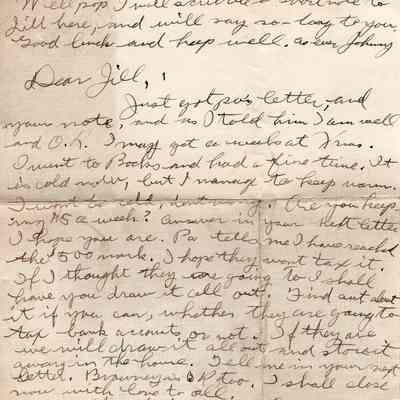 Well pop I will scribble a short note to
Jill here, and will say so-long to you.
Good luck and keep well. as ever Johnny
Dear Jill,
Just got pa's letter, and
your note, and as I told him I am well
and O.K. I may get a week at Xmas.
I went to Books and had a fine time. It
is cold now, but I manage to keep warm.
I wont be cold, dont worry. Are you keep
ing a week? answer in your next letter
I hope you are. Pa tells me I have reached
the 500 mark. I hope they wont tax it.
If I thought they are going to I shall
have you draw it all out. Find out about
it if you can, whether they are going to
tax bank accounts, or not. If they are
we will draw it all out and store it
away in the house. Tell me in your next
letter. Browney is O.K. too. I shall close
now with love to all.